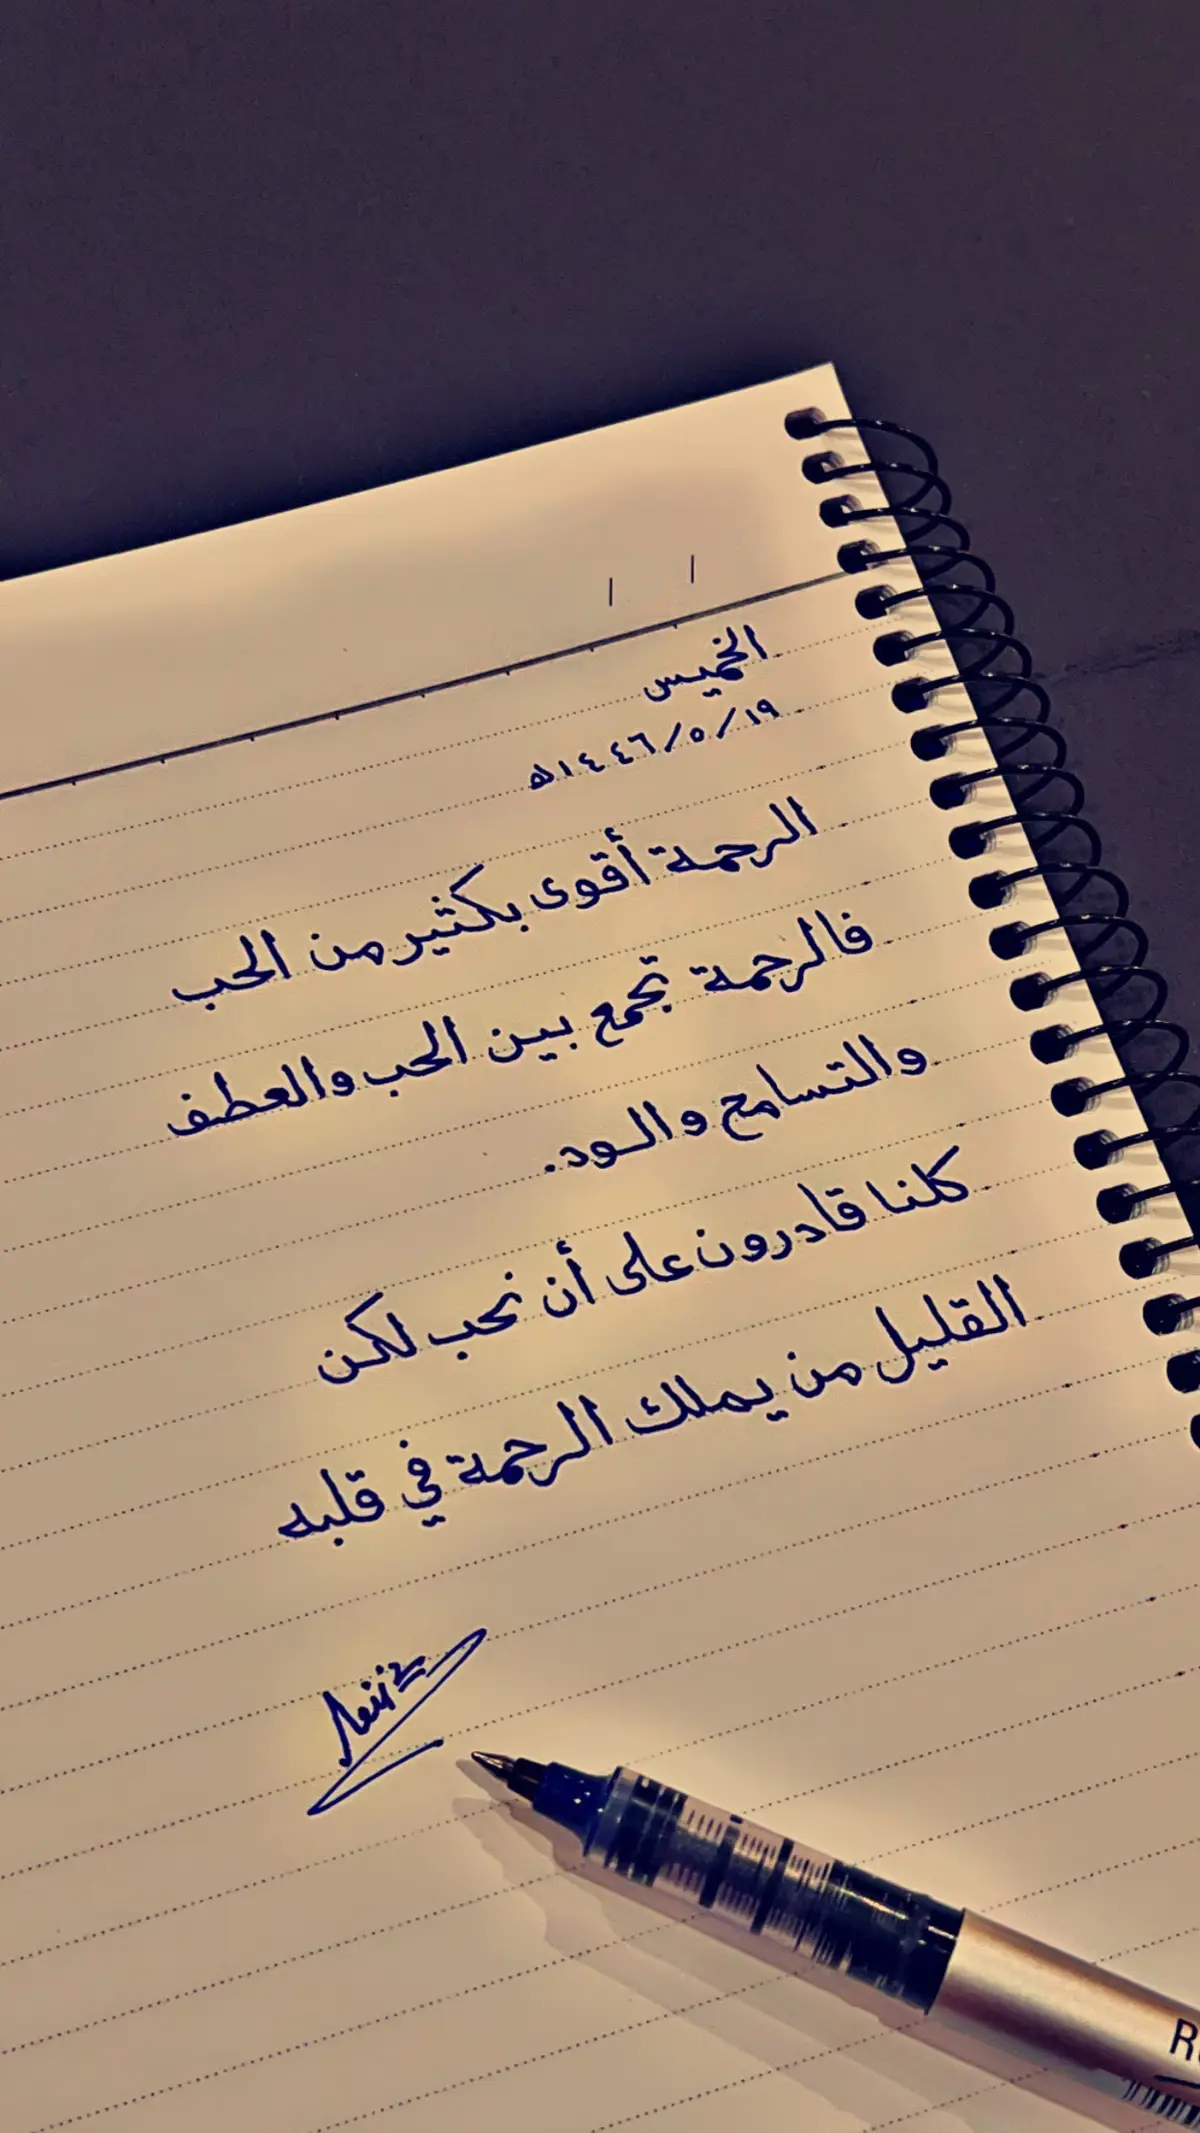 الخميس
١٩/٥/١٤٤٦ه
الرحمة أقوى بكثير من الحب
فالرحمة تجمع بين الحب والعطف
والتسامح والود.
كلنا قادرون على أن نحب لكن
القليل من يملك الرحمة في قلبه